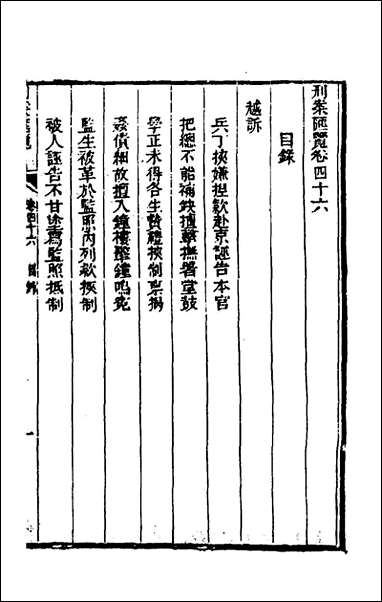 刑案匯覽卷四十六
目錄
越訴
兵丁挾嫌捏款赴京誣告本官
把總不能補缺擅擊撫署堂鼓
學正未得各生贄禮挾制稟揭
姦債細故擅入鐘樓聲鐘鳴冤
監生被革於監照內列款挾制
被人誣告不甘塗寫監照抵制
卷四十六 目錄 一